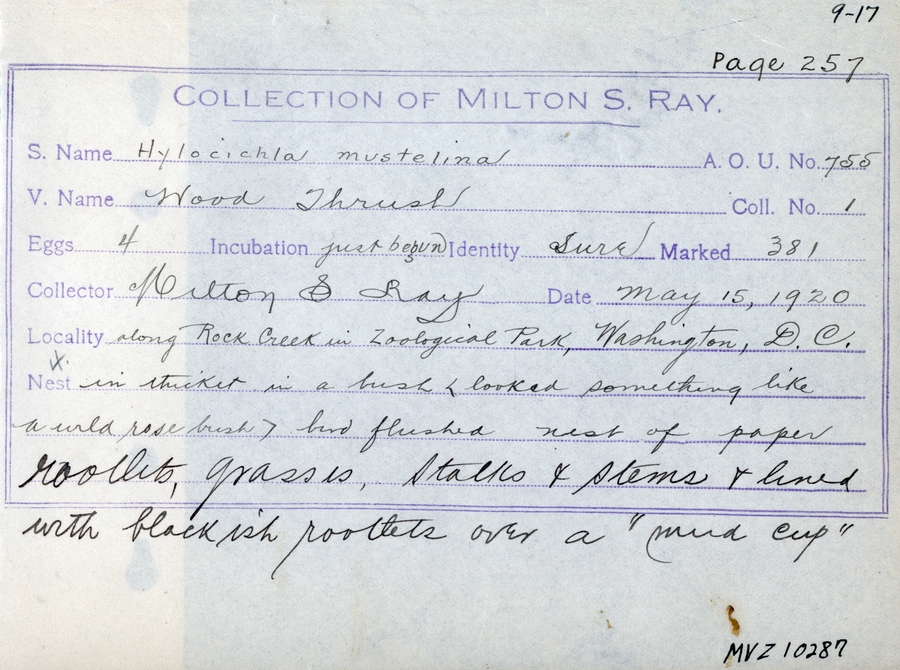 9-17
Page 257
COLLECTION OF MILTON S. RAY.
S. Name Hylocichla mustelina A. O. U. No. 755
V. Name Wood Thrush Coll. No. 1
Eggs 4 Incubation just begun Identity Sure Marked 381
Collector Milton S Ray Date May 15, 1920
Locality along Rock Creek in Zoological Park, Washington, D. C.
x.
Nest in thicket in a bush < looked something like
a wild rose bush > bird flushed nest of paper
rootlets, grasses, stalks & stems & lined
with blackish rootlets over a "mud cup"
MVZ 10287